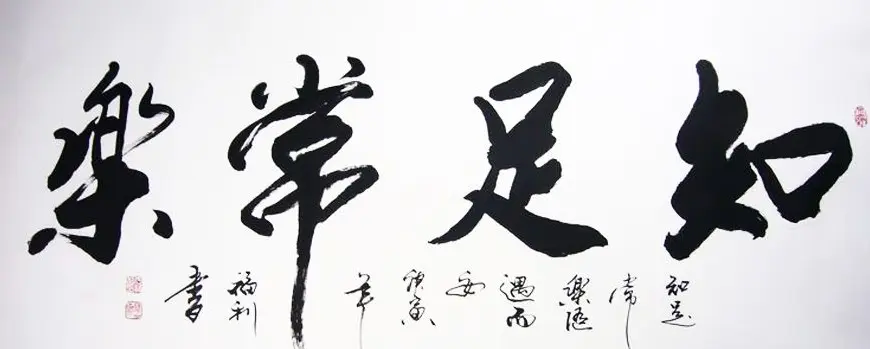 知足常樂
知足
常
樂隨
遇而
安
庚寅
年
福利
書